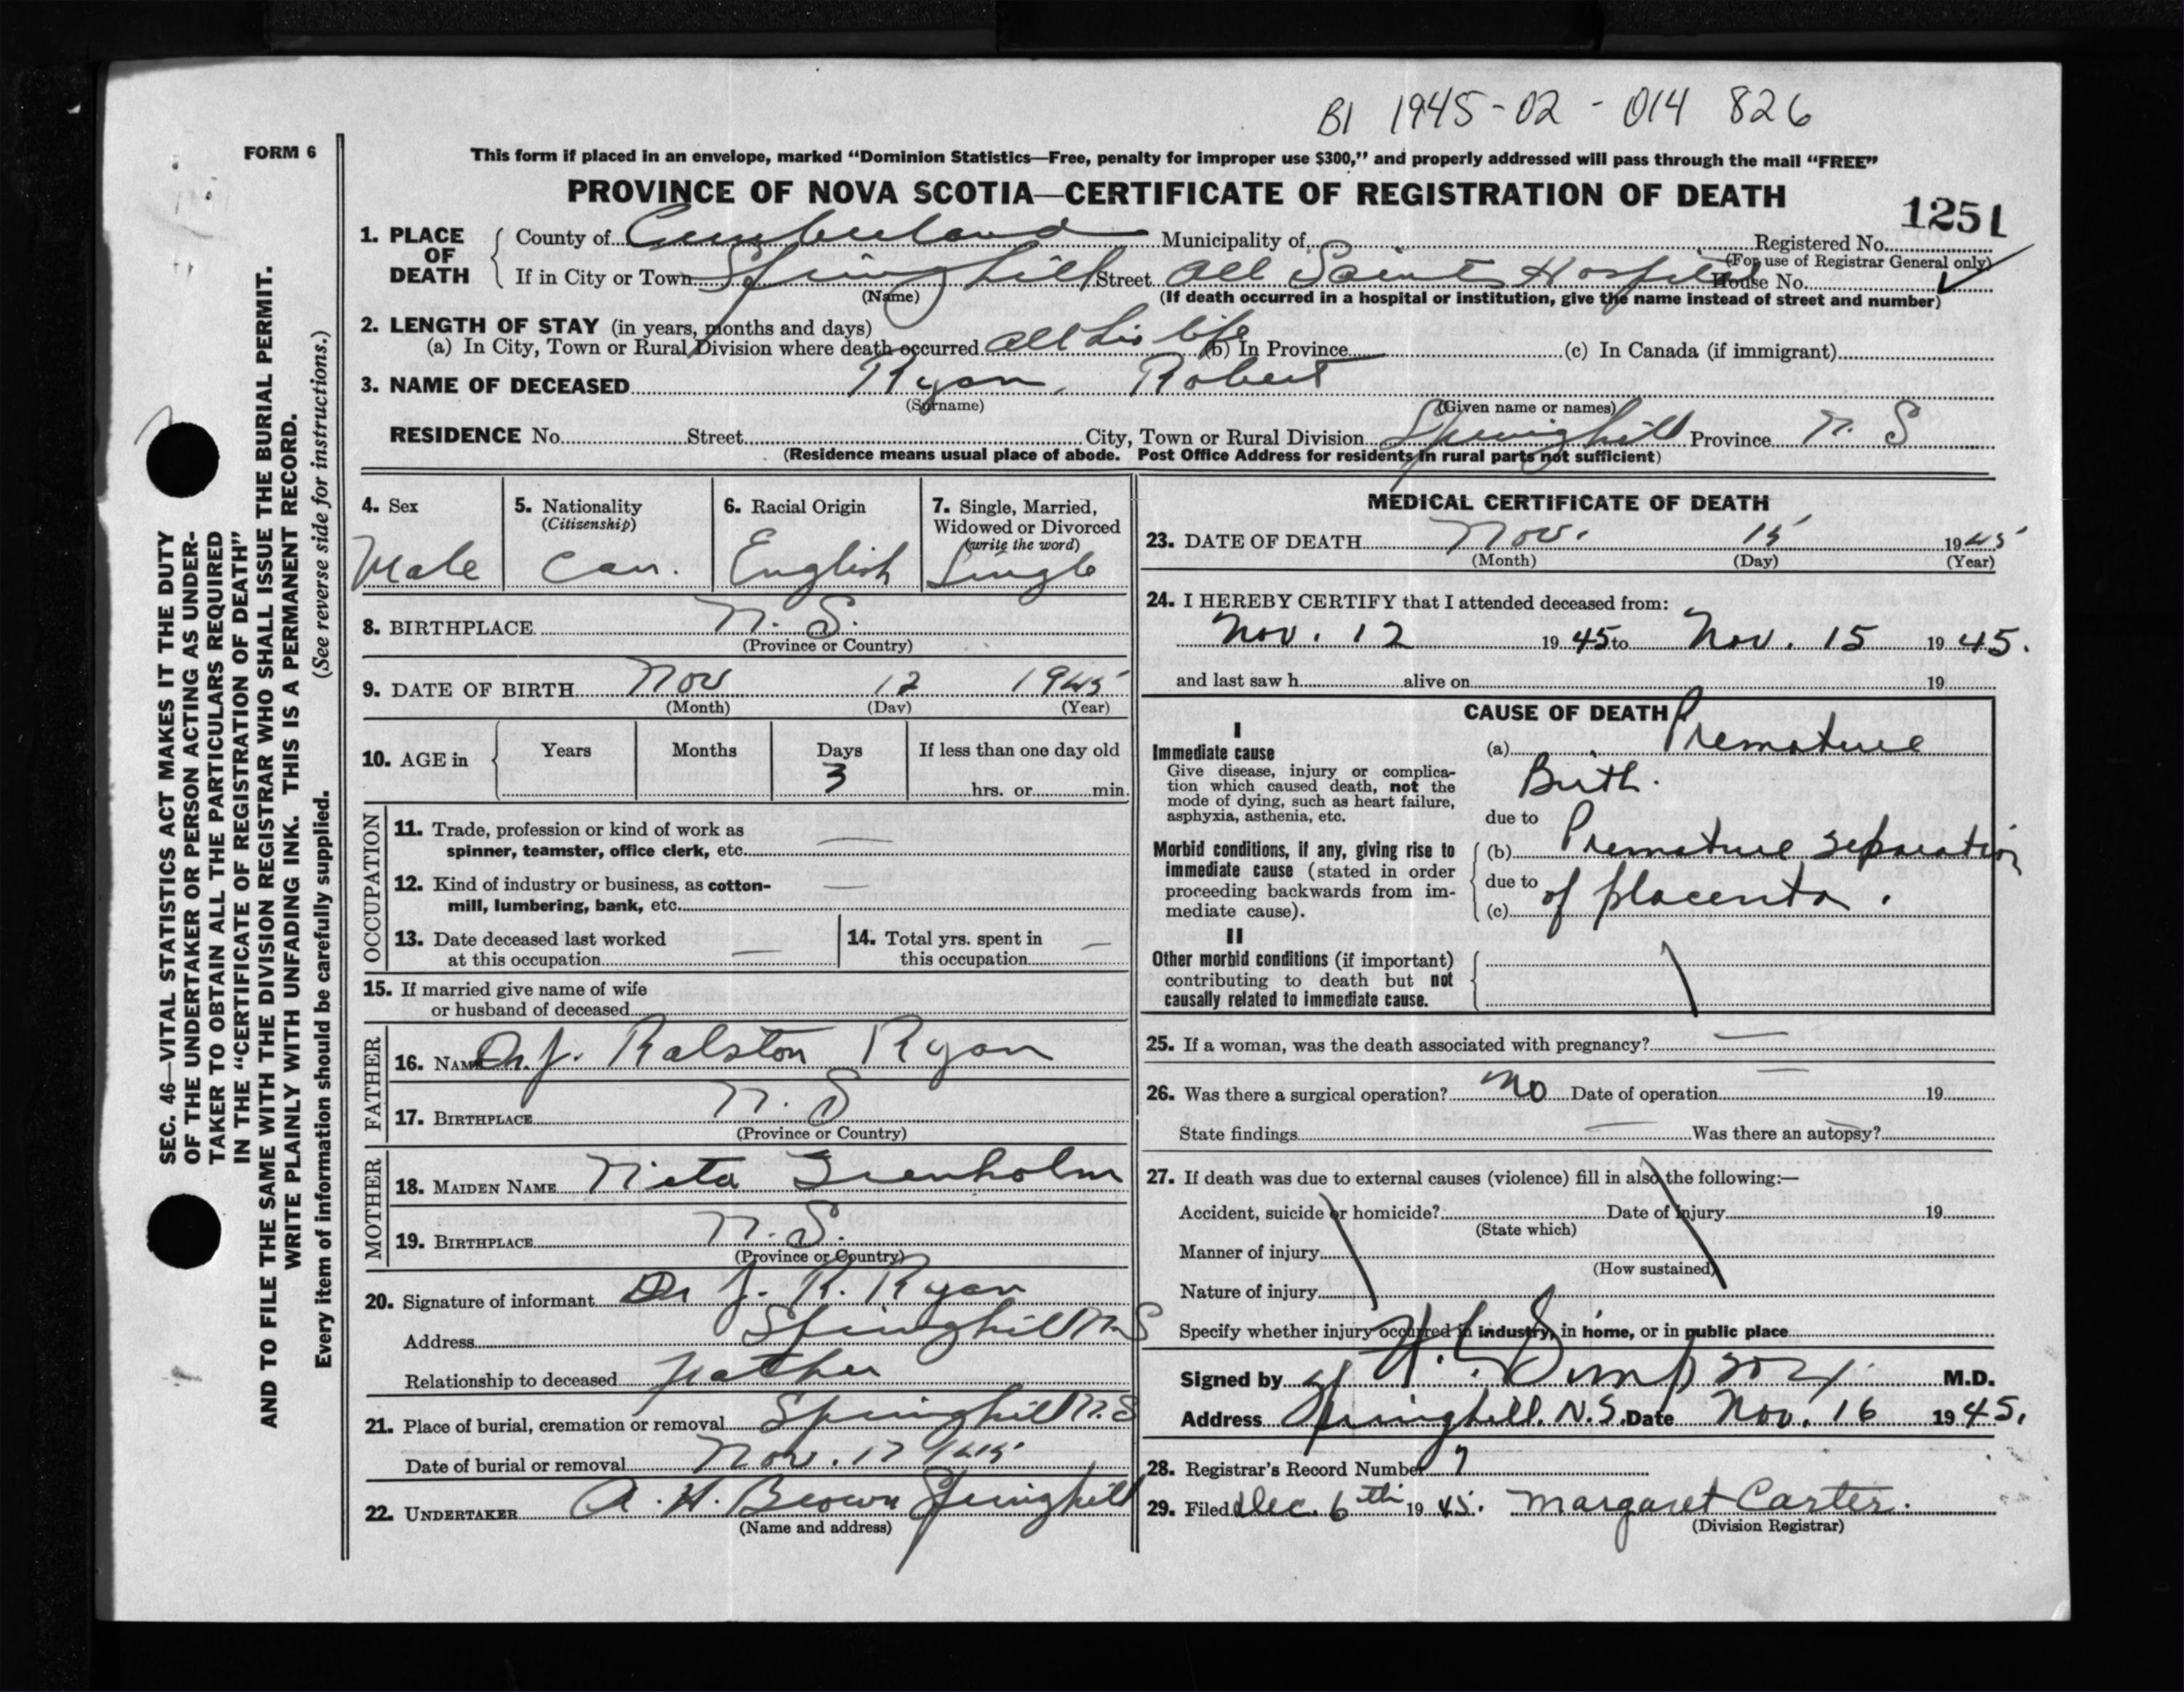 BI 1945-02-014826
FORM 6
This form if placed in an envelope, marked “Dominion Statistics—Free, penalty for improper use $300,” and properly addressed will pass through the mail “FREE”
PROVINCE OF NOVA SCOTIA—CERTIFICATE OF REGISTRATION OF DEATH
1251
1. PLACE OF DEATH { County of Cumberland Municipality of Registered No.
(For use of Registrar General only)
If in City or Town Springhill Street All Saints Hospital House No.
(Name) (If death occurred in a hospital or institution, give the name instead of street and number)
2. LENGTH OF STAY (in years, months and days)
(a) In City, Town or Rural Division where death occurred All his life (b) In Province (c) In Canada (if immigrant)
3. NAME OF DECEASED Ryan, Robert
(Surname) (Given name or names)
RESIDENCE No. Street City, Town or Rural Division Springhill Province N. S
(Residence means usual place of abode. Post Office Address for residents in rural parts not sufficient)
4. Sex
Male
5. Nationality
(Citizenship)
Can.
6. Racial Origin
English
7. Single, Married,
Widowed or Divorced
(write the word)
Single
8. BIRTHPLACE N. S.
(Province or Country)
9. DATE OF BIRTH Nov 12 1945
(Month) (Day) (Year)
10. AGE in { Years Months Days If less than one day old
3 hrs. or min.
OCCUPATION
11. Trade, profession or kind of work as
spinner, teamster, office clerk, etc. —
12. Kind of industry or business, as cotton-
mill, lumbering, bank, etc. —
13. Date deceased last worked
at this occupation —
14. Total yrs. spent in
this occupation —
15. If married give name of wife
or husband of deceased
FATHER
16. NAME Dr. J. Ralston Ryan
17. BIRTHPLACE N. S
(Province or Country)
MOTHER
18. MAIDEN NAME Nita
19. BIRTHPLACE N. S.
(Province or Country)
20. Signature of informant Dr J. R. Ryan
Address Springhill N S
Relationship to deceased Father
21. Place of burial, cremation or removal Springhill N. S
Date of burial or removal Nov. 17 1945
22. UNDERTAKER A. H. Brown Springhill
(Name and address)
MEDICAL CERTIFICATE OF DEATH
23. DATE OF DEATH Nov. 15 1945
(Month) (Day) (Year)
24. I HEREBY CERTIFY that I attended deceased from:
Nov. 12 1945 to Nov. 15 1945.
and last saw h alive on 19
CAUSE OF DEATH
I
Immediate cause
Give disease, injury or complica-
tion which caused death, not the
mode of dying, such as heart failure,
asphyxia, asthenia, etc.
(a) Premature
Birth.
due to
Morbid conditions, if any, giving rise to
immediate cause (stated in order
proceeding backwards from im-
mediate cause).
(b) Premature separation
due to
(c) of placenta.
II
Other morbid conditions (if important)
contributing to death but not
causally related to immediate cause.
25. If a woman, was the death associated with pregnancy? —
26. Was there a surgical operation? No Date of operation — 19
State findings — Was there an autopsy? —
27. If death was due to external causes (violence) fill in also the following:—
Accident, suicide or homicide? Date of injury 19
(State which)
Manner of injury
(How sustained)
Nature of injury
Specify whether injury occurred in industry, in home, or in public place
Signed by Simpson M.D.
Address Springhill, N.S. Date Nov. 16 1945.
28. Registrar's Record Number 7
29. Filed Dec. 6th 1945. Margaret Carter.
(Division Registrar)
SEC. 46—VITAL STATISTICS ACT MAKES IT THE DUTY
OF THE UNDERTAKER OR PERSON ACTING AS UNDER-
TAKER TO OBTAIN ALL THE PARTICULARS REQUIRED
IN THE “CERTIFICATE OF REGISTRATION OF DEATH”
AND TO FILE THE SAME WITH THE DIVISION REGISTRAR WHO SHALL ISSUE THE BURIAL PERMIT.
WRITE PLAINLY WITH UNFADING INK. THIS IS A PERMANENT RECORD.
Every item of information should be carefully supplied. (See reverse side for instructions.)